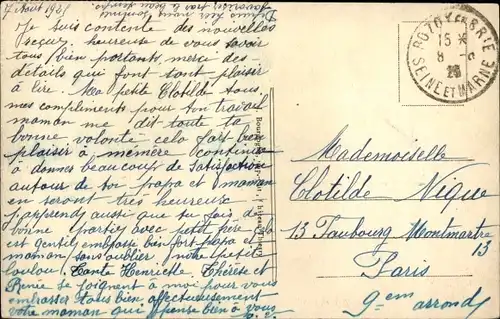 7 Août 1928
Je suis contente des nouvelles
reçues. heureuse de vous savoir
tous bien portants, merci des
détails qui font tant plaisir
à lire. Ma petite Clotilde tous
mes compliments pour ton travail
maman me dit toute ta
bonne volonté cela fait bien
plaisir à mémère continue
à donner beaucoup de satisfaction
autour de toi papa et maman
en seront très heureux
j'apprends aussi que tu fais de
bonne parties avec petit père
est gentil embrasse bien fort papa et
maman sans oublier notre petit
loulou. Tante Henriette Thérèse et
Renée se joignent à moi pour vous
embrasser tous bien affectueusement
votre maman qui pense bien à vous
ROZOY EN BRIE
15 *
8 - 8
28
SEINE ET MARNE
Mademoiselle
Clotilde Nique
13 Faubourg Montmartre
13
Paris
9em arrond